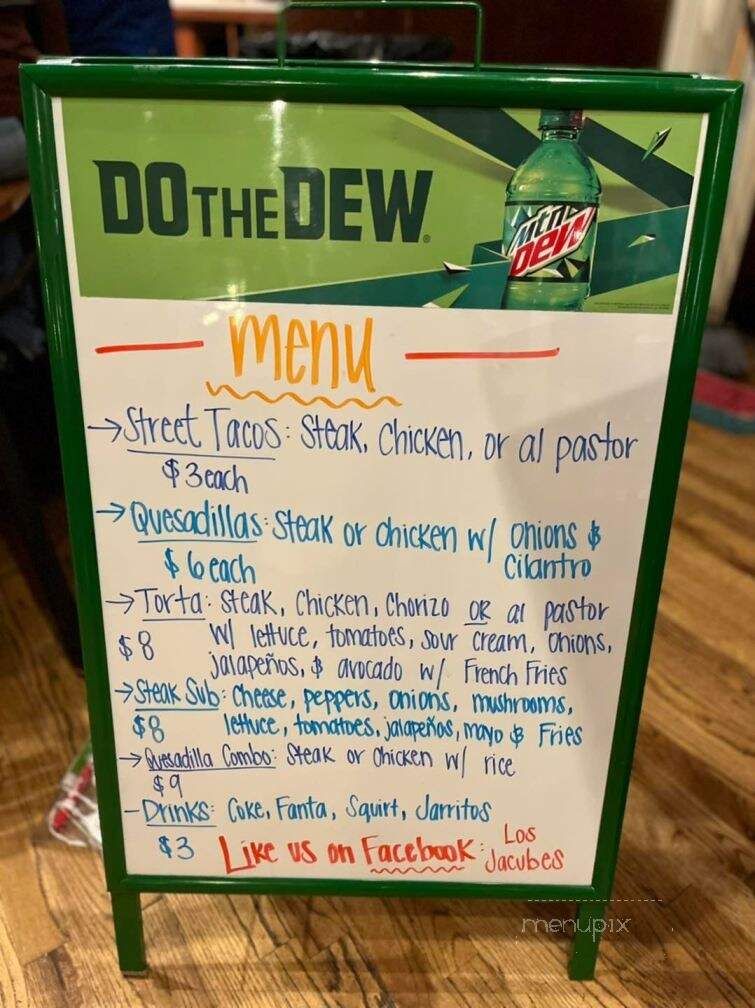 DO THE DEW
mtn Dew
— menu —
→ Street Tacos: Steak, Chicken, or al pastor
$3 each
→ Quesadillas: Steak or chicken w/ onions &
$6 each Cilantro
→ Torta: Steak, Chicken, Chorizo OR al pastor
$8 w/ lettuce, tomatoes, sour cream, onions,
jalapeños, & avocado w/ French Fries
→ Steak Sub: Cheese, peppers, onions, mushrooms,
$8 lettuce, tomatoes, jalapeños, mayo & Fries
→ Quesadilla Combo: Steak or Chicken w/ rice
$9
- Drinks: Coke, Fanta, Squirt, Jarritos
$3 Like us on Facebook: Los
Jacubes
menupix